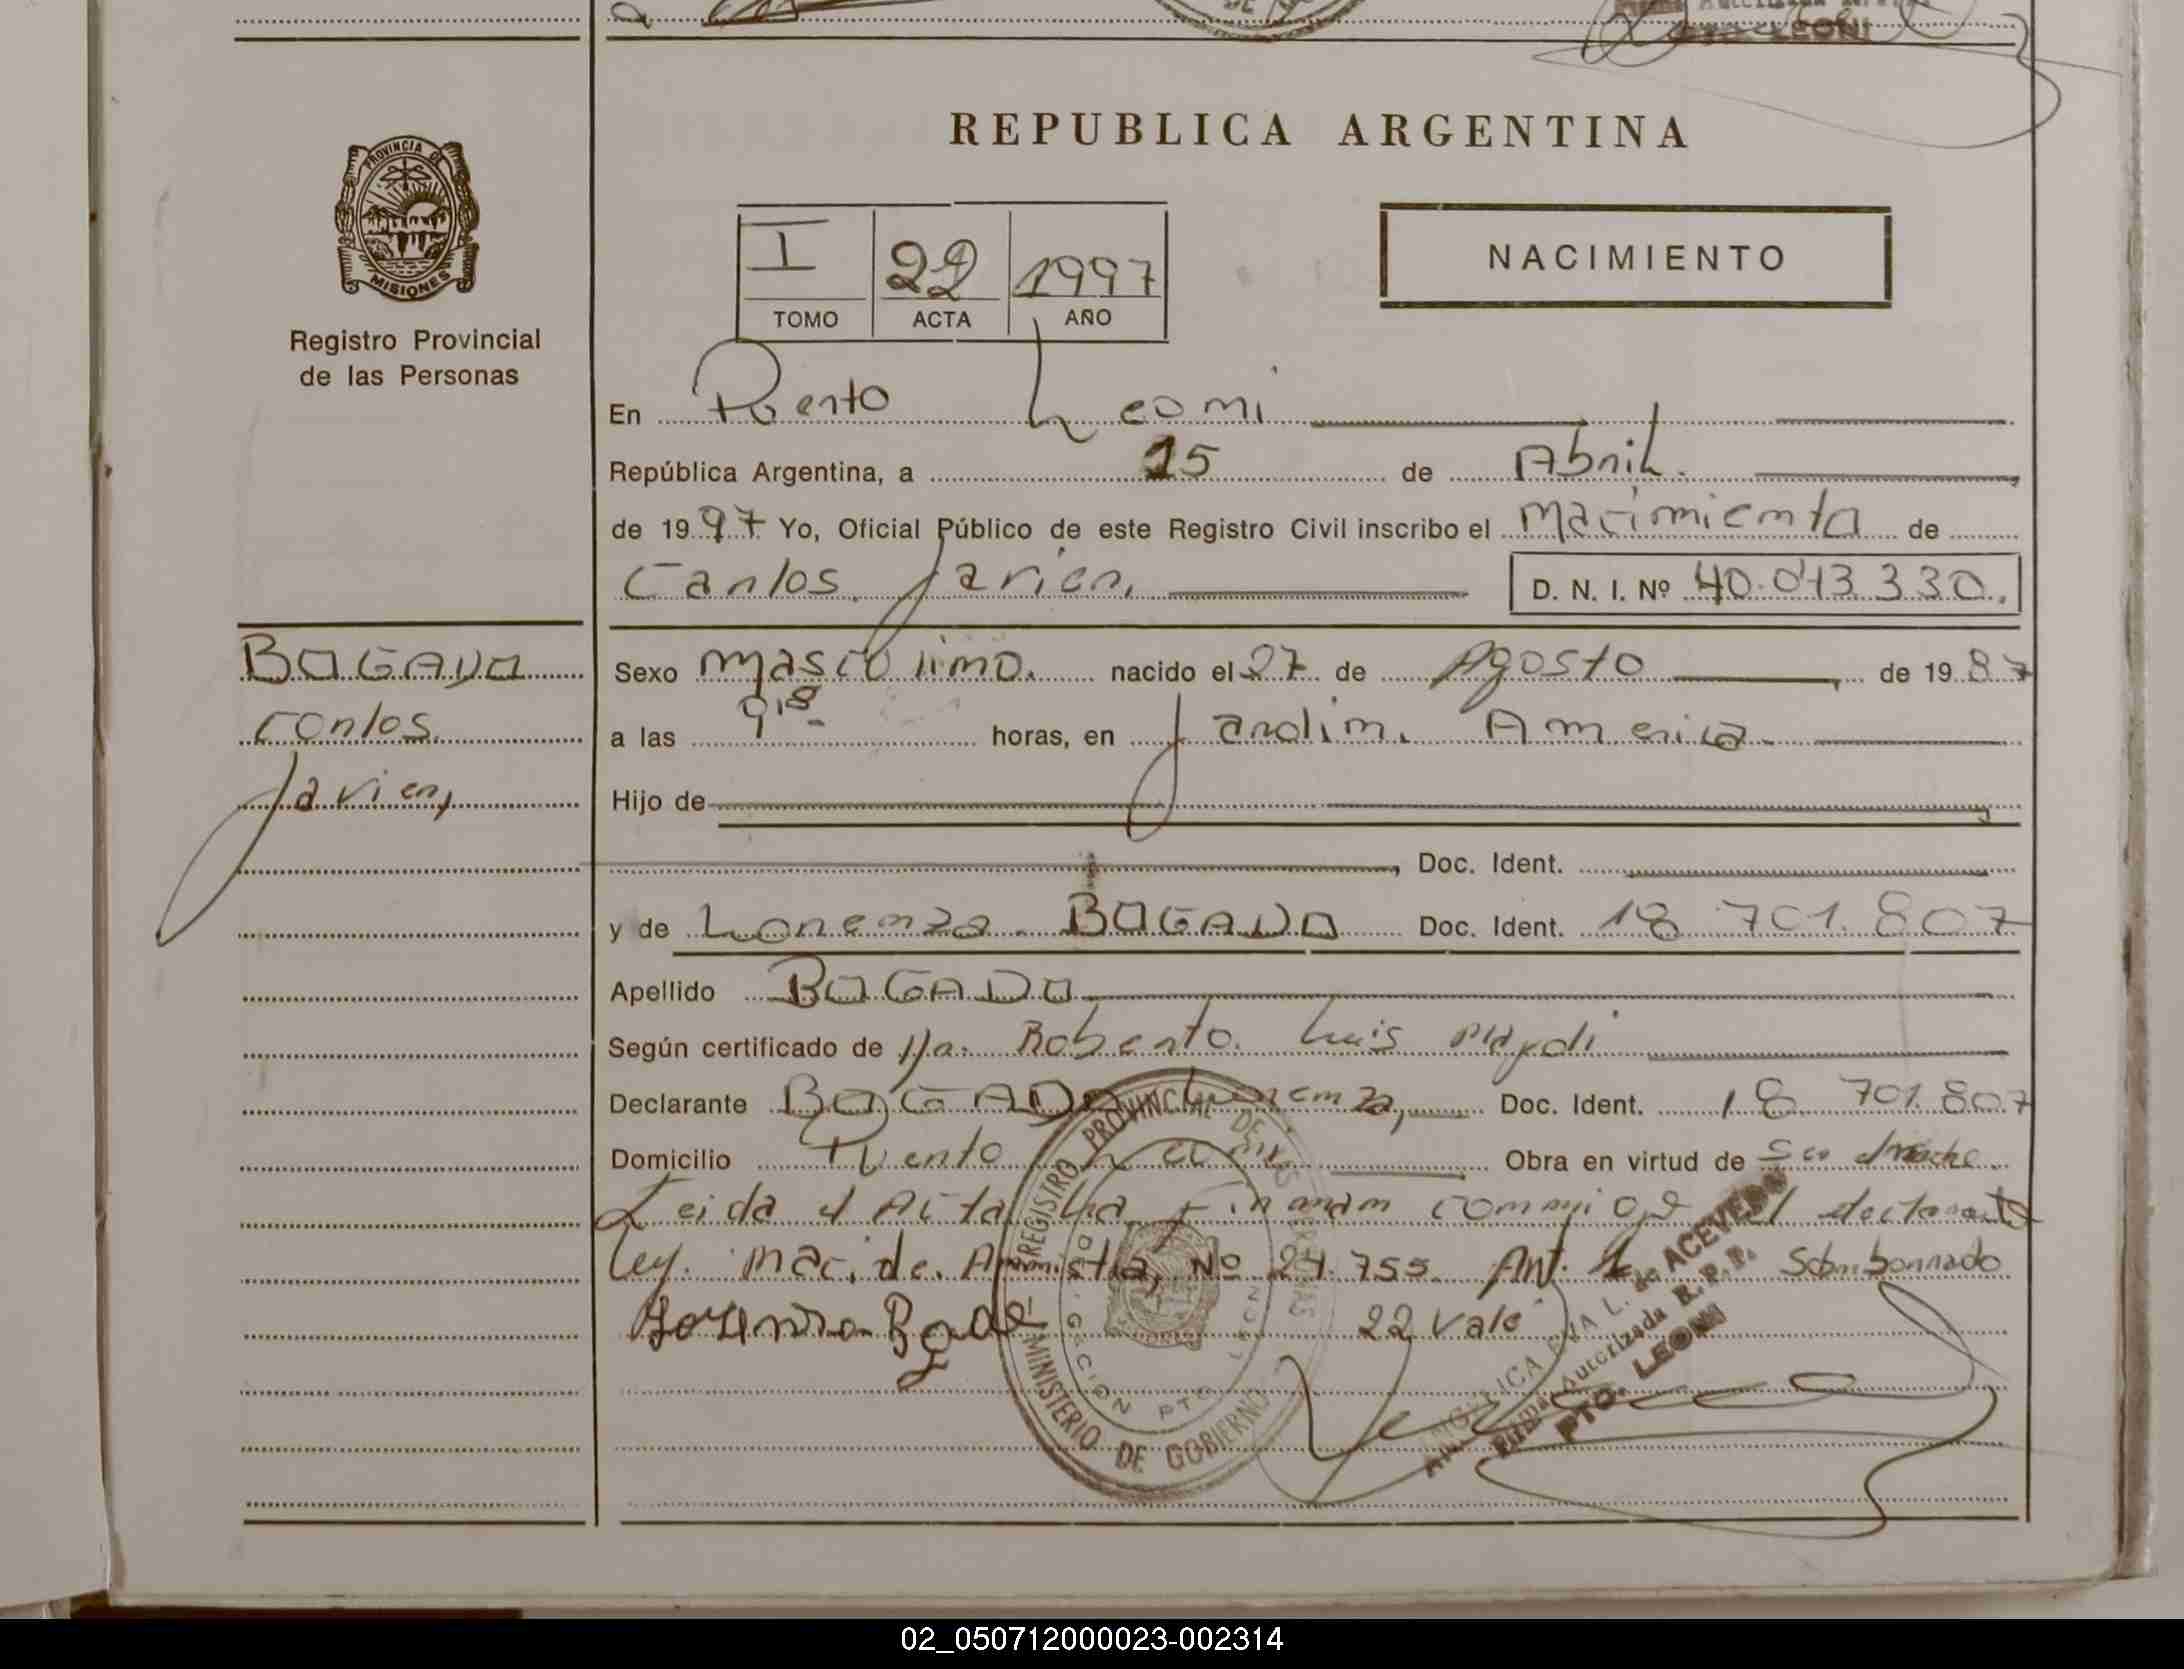 REPUBLICA ARGENTINA
PROVINCIA DE
MISIONES
Registro Provincial
de las Personas
I 22 1997
TOMO ACTA AÑO
NACIMIENTO
En Puerto Leoni
República Argentina, a 15 de Abril.
de 1997 Yo, Oficial Público de este Registro Civil inscribo el nacimiento de
Carlos Javier, D. N. I. Nº 40.043.330.
BOGADO
Carlos
Javier,
Sexo masculino. nacido el 27 de Agosto de 1987
a las 9,18 horas, en Jardin America
Hijo de
Doc. Ident.
y de Lorenza BOGADO Doc. Ident. 18 701.807
Apellido BOGADO
Según certificado de Roberto Luis
Declarante BOGADO Lorenza, Doc. Ident. 18 701.807
Domicilio Puerto Leoni Obra en virtud de
Leida el Acta la Firman conmigo el declarante
Ley. Naci. de Amnistia, Nº 24.755. Art. 1 Sobrborrado
22 Vale
REGISTRO PROVINCIAL DE LAS PERSONAS
MINISTERIO DE GOBIERNO
ANGELICA EVA L. de ACEVEDO
Firma Autorizada R. P. P.
PTO. LEONI
02_050712000023-002314